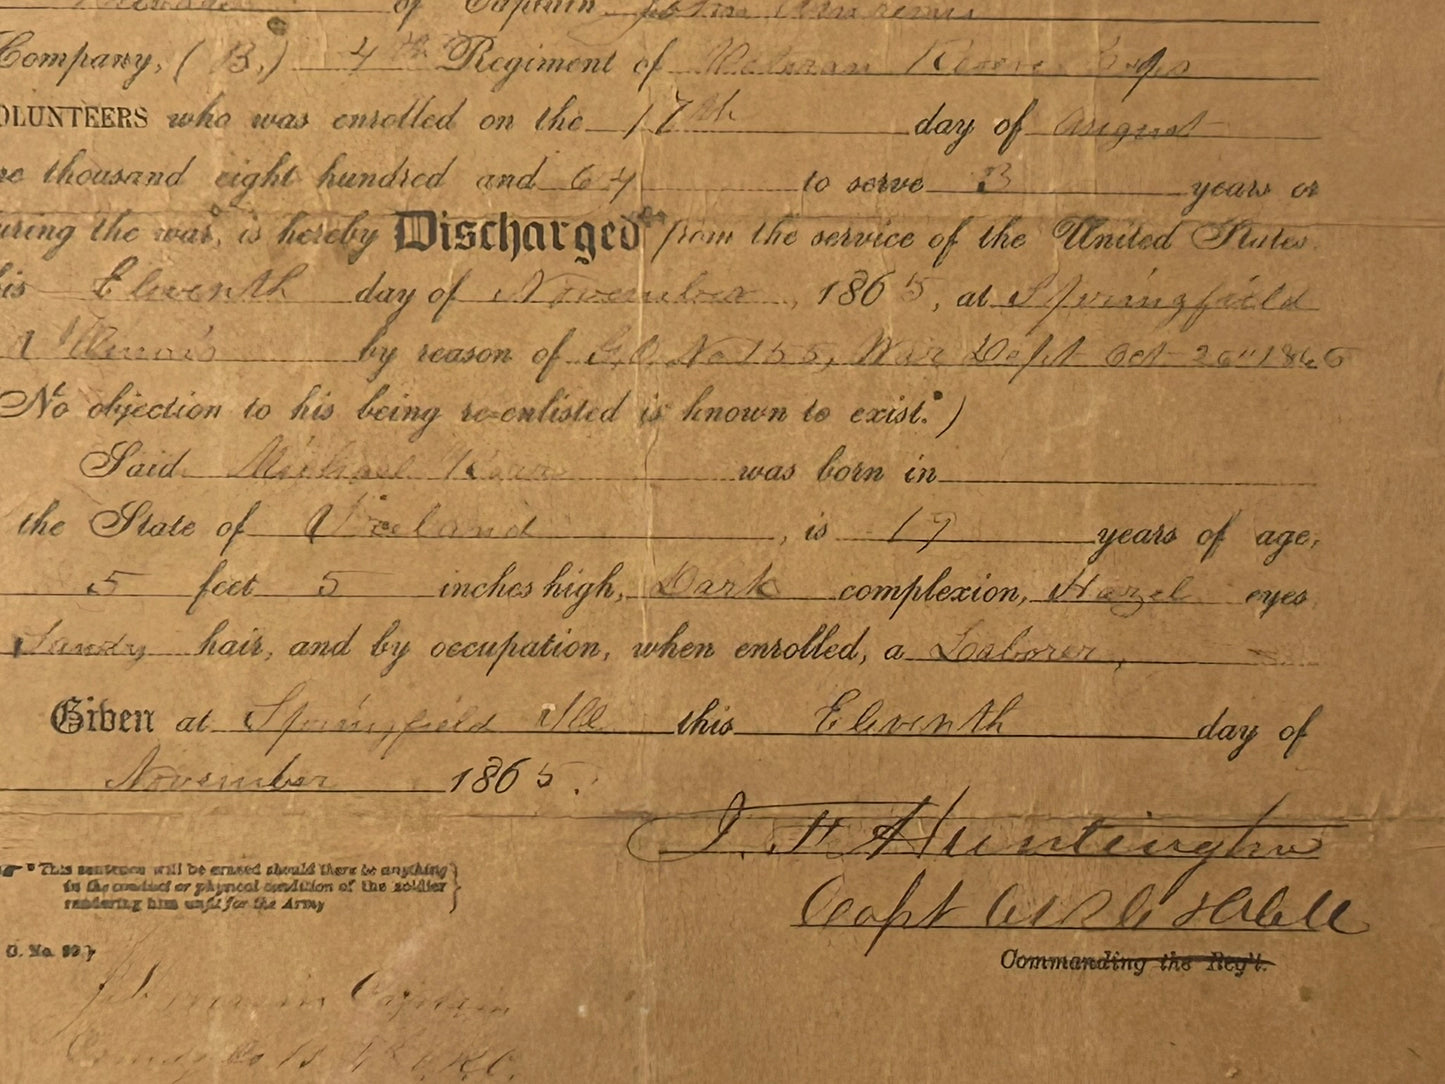 of Captain John
Company, (B,) 4th Regiment of Veteran Reserve Corps
OLUNTEERS who was enrolled on the 17th day of August
ne thousand eight hundred and 64 to serve 3 years or
uring the war, is hereby Discharged from the service of the United States,
his Eleventh day of November, 1865, at Springfield
Illinois by reason of G.O. No 155, War Dept Oct 26" 1865
No objection to his being re-enlisted is known to exist.*)
Said Michael was born in
the State of Ireland, is 19 years of age,
5 feet 5 inches high, Dark complexion, Hazel eyes
Sandy hair, and by occupation, when enrolled, a Laborer,
Given at Springfield Ill this Eleventh day of
November 1865.
Huntington
Capt
Commanding the Reg't.
*This sentence will be erased should there be anything
in the conduct or physical condition of the soldier
rendering him unfit for the Army
G. No. 99}
Captain
Comdg Co B 4th V.R.C.